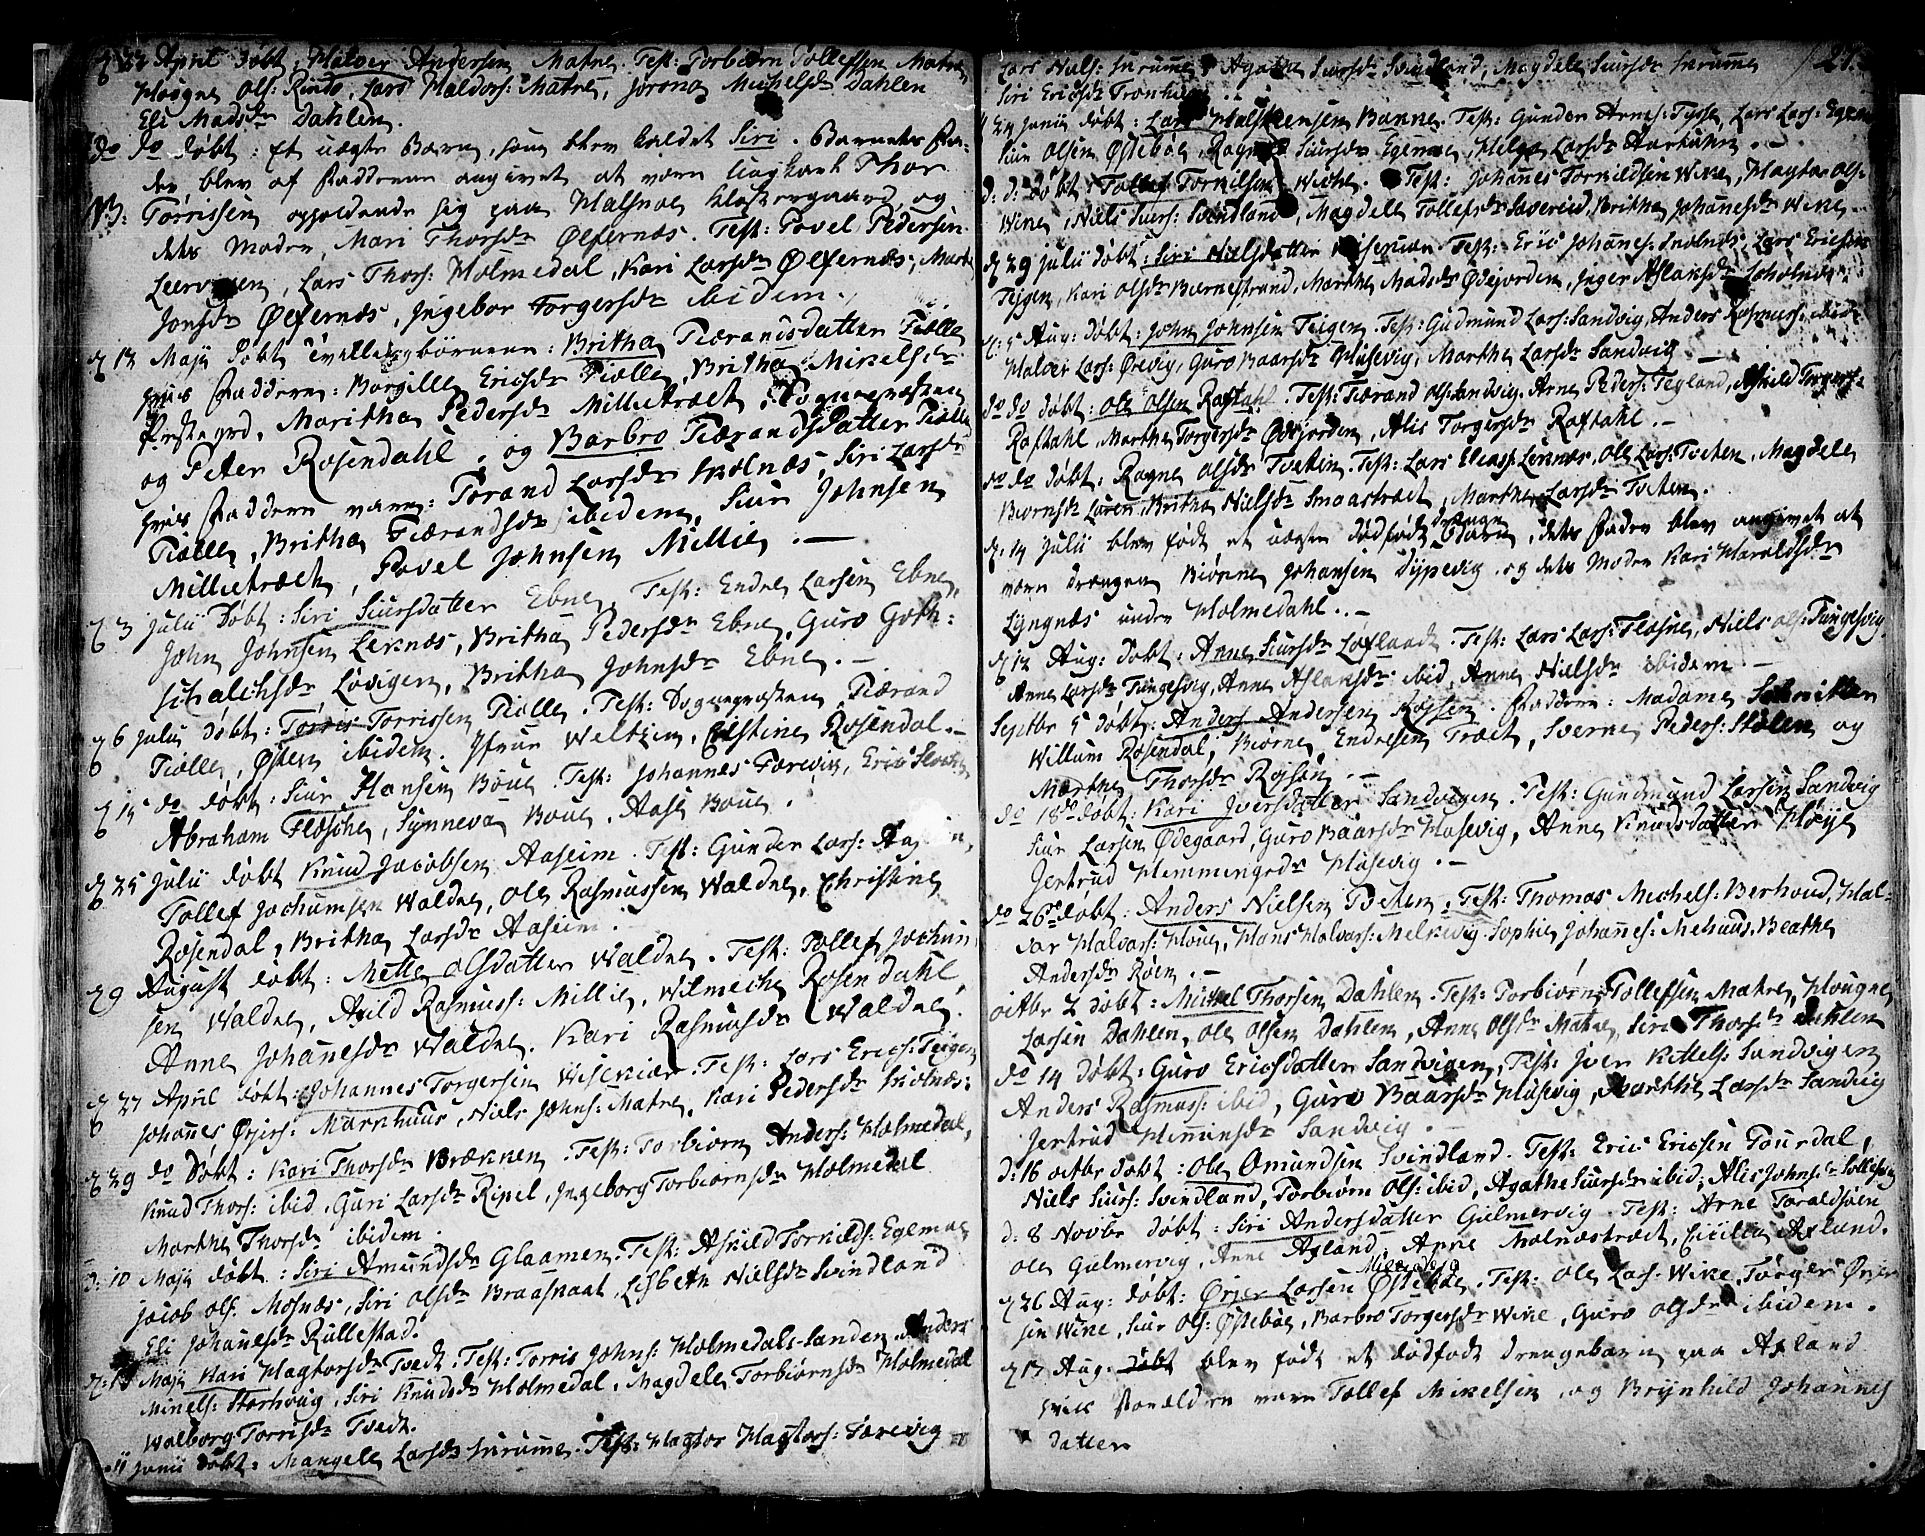 22 April døbt: Halvor Andersen Matre. Test: Torbiørn Tollefsen Matre
Hougne Ols: Rinds, Lars Haldors: Matre, Jorona Michelsdr Dahlen
Eli Madsdr Dahlen.
do døbt: Et uægte Barn, som blev kaldet Siri. Barnets Fa-
der blev af Faddrene angivet at være Ungkarl Thor
NB: Torrissen opholdende sig paa Halsnøe Klostergaard, og
dets Moder, Mari Thorsdr Ølfernæs. Test: Povel Pedersen
Leervigen, Lars Thors: Holmedal, Kari Larsdr Ølfernæs, Mart
Jonsdr Ølfernæs, Ingebor Torgersdr ibidem.
d 13 Maji døbt Tvillingbørnene: Britha Tiærandsdatter Tiølle
hvis Faddere: Borgille Ericsdr Tiølle, Britha Mikelsdr
Prstegrd, Maritha Pedersdr Millietræet, Sognepræsten
og Peter Rosendahl, og Barbro Tiærandsdatter Tiølle
hvis Faddere vare: Torand Larsdr Skolnæs, Siri Larsdr
Tiølle, Britha Tiærandsdr ibidem, Siur Johnsen
Millietræet, Povel Johnsen Millie.
d 3 Julii Døbt: Siri Siursdatter Ebne, Test: Endre Larsen Ebne,
John Johnsen Leknæs, Britha Pedersdr Ebne, Guro Goth-
schalchsdr Løvigen, Britha Johnsdr Ebne.
d 6 Julii døbt: Torris Torrissen Tiølle. Test: Sognepræsten, Tiærand
Tiølle, Østen ibidem. Jfrue Weltzin, Cristine Rosendal.
d 15 do døbt: Siur Hansen Boue. Test: Johannes Farevig, Eric
Abraham Flæsche, Synneva Boue, Aase Boue.
d 25 Julii døbt Knud Jacobsen Aaseim. Test: Gunder Lars: Aaseim,
Tollef Jochumsen Waldre, Ole Rasmussen Waldre, Christine
Rosendal, Britha Larsdr Aaseim.
d 9 August døbt: Mette Olsdatter Waldre. Test: Tollef Jochum
sen Waldre, Arild Rasmuss: Millie, Wilmeche Rosendahl,
Anne Johannesdr Waldre. Kari Rasmusdr Waldre.
d 27 April døbt: Johannes Torgersen Wiskiær. Test: Lars Erics: Teigen
Johannes Ørjers: Markhuus, Niels Johns: Matre, Kari Pedersdr Skolnæs:
d 29 do Døbt: Kari Thorsdr Brækken. Test: Torbiørn Anders: Holmedal,
Knud Thors: ibid, Guri Larsdr Ripel, Ingeborg Torbiørnsdr Holmedal
Marthe Thorsdr ibidem.
d: 10 Maji døbt: Siri Amundsdr Glaamen. Test: Askild Torkilds: Egemoe
Jacob Ols. Mosnæs, Siri Olsdr Braasnaat, Lisbeth Nielsdr Svindland
Eli Johannesdr Rullestad.
d: 13 Maji Kari Hagtorsdr Tvedt. Test: Torris Johns: Holmedals-Sanden, Anders
Mikels: Storhoug, Siri Knudsdr Holmedal, Magdele Torbiørnsdr Holmedal
Walborg Torrisdr Tvedt.
11 Junii døbt: Mangele Larsdr Skrumme. Test: Hagtor Hagtors: Farevig
Lars Niels: Skrumme, Agatha Siursdr Svindland, Magdele Siursdr Skrumme
Siri Ericsdr
24 Junii døbt: Lars Halsteensen Banne. Test: Gunder Arnes: Tysse, Lars Lars: Egemoe
Siur Olsen Østebøe, Ragne Siursdr Egemoe, Helga Larsdr
d. d: Døbt: Tollef Torkilsen Wiche. Test: Johannes Torkildsen Wike, Hagtor Ols:
Wike, Niels Siurs: Svindland, Magdele Tollefsdr Saverud, Britha Johannesdr Wike.
d 29 Julii døbt: Siri Nielsdatter Test: Eric Johannes: Skolnæs, Lars Ericsen
Tejgen, Kari Olsdr Biernestrand, Marthe Madsdr Ødejorden, Inger Aslaksdr Skolnæs
d: 5 Aug: døbt: John Johnsen Teigen. Test: Gudmund Lars: Sandvig, Anders Rasmuss: ibid
Halvor Lars: Ørevig, Guro Baarsdr Husevig, Marthe Larsdr Sandvig
do do døbt: Ole Olsen Raftahl. Test: Tiærand Ols: Sandvig, Arne Peders: Tegland, Askild Torgers:
Raftahl, Marthe Torgersdr Ødejorden, Alis Torgersdr Raftahl.
do do døbt: Ragne Olsdr Tveten. Test: Lars Elias: Leknæs, Ole Lars: Tveten, Magdele
Biørnsdr Løren, Britha Nielsdr Smaatræet, Marthe Larsdr Tveten.
d. 14 Julii blev født et uægte dødfødt drenge Barn, dets Fader blev angivet at
være Drengen Biørne Johansen Dypevig og dets Moder Kari Haraldsdr
Lyngnæs under Holmedahl.
d 12 Aug: døbt: Anne Siursdr Løflaadt. Test: Lars Lars: Fløsne, Niels Ols: Tungesvig,
Anne Larsdr Tungesvig, Anne Aslaksdr ibid, Anne Nielsdr ibidem.
Septbr 5 døbt: Anders Andersen Røssen. Faddere: Madame Schnitler
Willum Rosendal, Biørne Endresen Træet, Sverre Peders: Støllen og
Marthe Thorsdr Røssen.
do 18 døbt: Kari Iversdatter Sandvigen. Test: Gundmund Larsen Sandvig
Siur Larsen Ødegaard, Guro Baarsdr Husevig, Anne Knudsdatter Høije
Jertrud Hemmingsdr Husevig.
do 26 døbt: Anders Nielsen Bekken. Test: Thomas Michels: Berhoud, Hal-
vor Halvors: Houe, Hans Halvors: Melkevig, Sophie Johannes: Mehuus, Beathe
Andersdr Røen.
octbr 2 døbt: Michel Thorsen Dahlen. Test: Torbiørn Tollefsen Matre, Hougne
Larsen Dahlen, Ole Olsen Dahlen, Anne Olsdr Matre, Siri Thorsdr Dahlen
do 14 døbt: Guro Ericsdatter Sandvigen, Test: Iver Kittels: Sandvigen
Anders Rasmuss: ibid, Guro Baarsdr Husevig, Marthe Larsdr Sandvig
Jertrud Hemminsdr Sandvig.
d: 16 octbr døbt: Ole Omundsen Svindland. Test: Eric Ericsen Fourdal,
Niels Siurs: Svindland, Torbiørn Ols: ibid, Agathe Siursdr ibid, Alis Johnsdr Tollesvig
d: 8 Novbr døbt: Siri Andersdatter Gielmervig. Test: Arne Taraldsøen
Ole Gielmervig, Anne Axland, Anne Skolnæstræet, Cicilia Axland.
d 26 Aug: døbt: Ørjer Larsen Østebøe. Test: Ole Lars: Wike, Torger Ørjer
sen Wike, Siur Ols: Østebøe, Barbro Torgersdr Wike, Guro Olsdr ibidem.
d 17 Aug: døbt blev født et dødfødt drengebarn paa Axland
hvis Forældre vare Tollef Mikelsen og Brynhild Johannes
datter